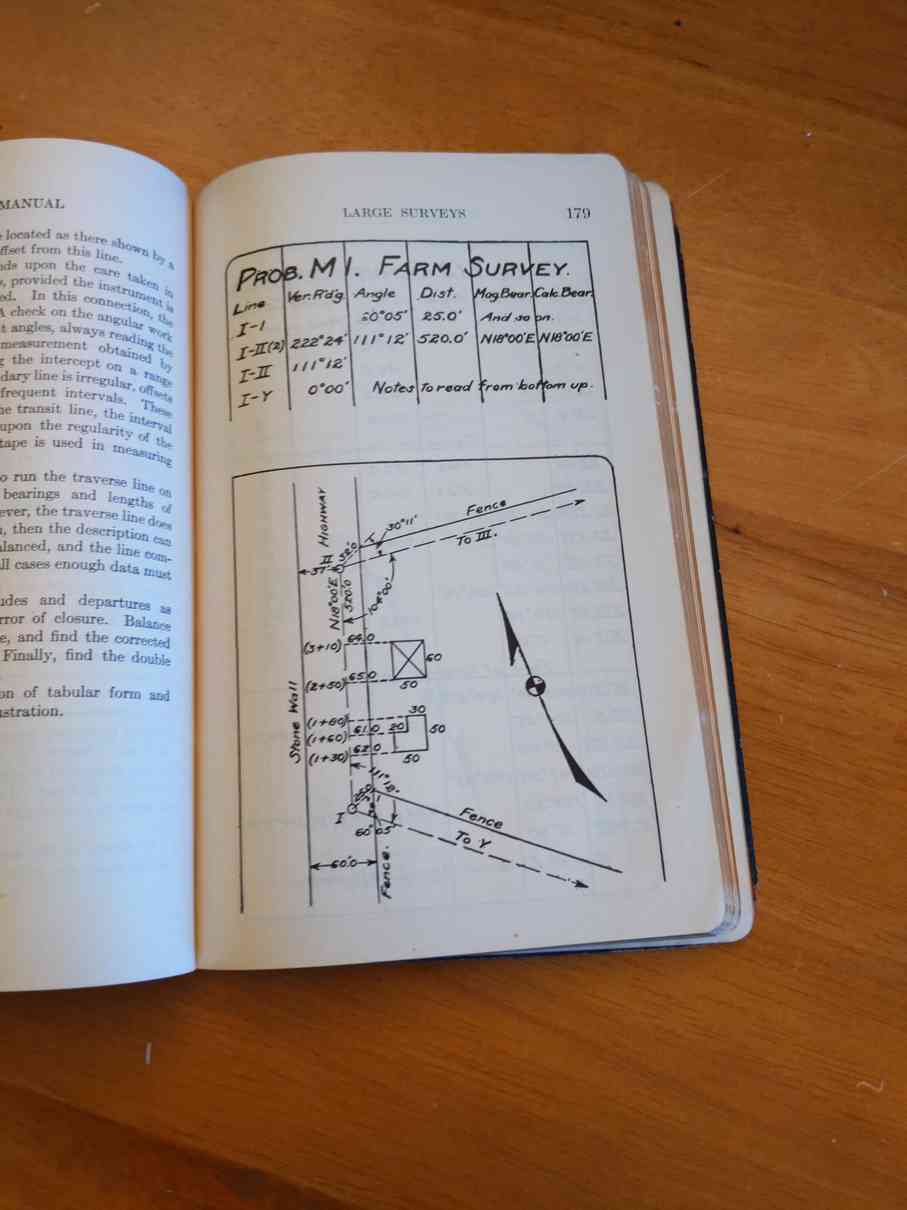 MANUAL
e located as there shown by a
ffset from this line.
nds upon the care taken in
, provided the instrument is
ed. In this connection, the
A check on the angular work
t angles, always reading the
measurement obtained by
g the intercept on a range
dary line is irregular, offsets
frequent intervals. These
he transit line, the interval
upon the regularity of the
tape is used in measuring
o run the traverse line on
bearings and lengths of
ever, the traverse line does
n, then the description can
alanced, and the line com-
ll cases enough data must
udes and departures as
rror of closure. Balance
e, and find the corrected
Finally, find the double
on of tabular form and
ustration.
LARGE SURVEYS 179
PROB. M 1. FARM SURVEY.
Line Ver. R'd'g. Angle Dist. Mag. Bear. Calc. Bear.
I-1 60°05' 25.0' And so on.
I-II(2) 222°24' 111°12' 520.0' N18°00'E N18°00'E
I-II 111°12'
I-Y 0°00' Notes to read from bottom up.
HIGHWAY
II
37
52.0
30°11'
Fence
To III.
N18°00'E
520.0
104°00'
(3+10) 64.0
60
(2+50) 65.0
50
Stone Wall
30
(1+80)
(1+60) 61.0 20 50
(1+30) 62.0
50
111°12'
25.0
I
60°05'
Fence
To Y
60.0
Fence.